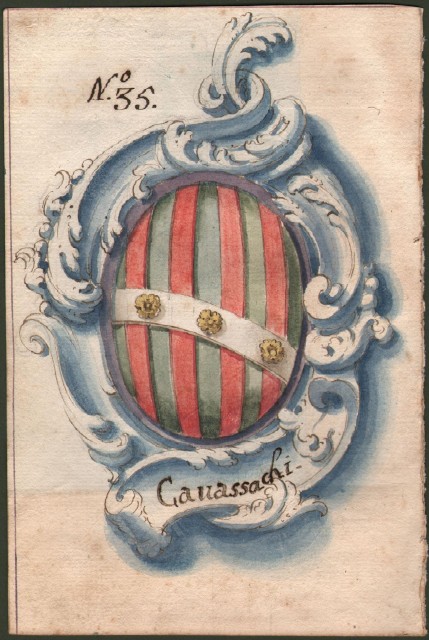 N.º 35.
Cauassachi.